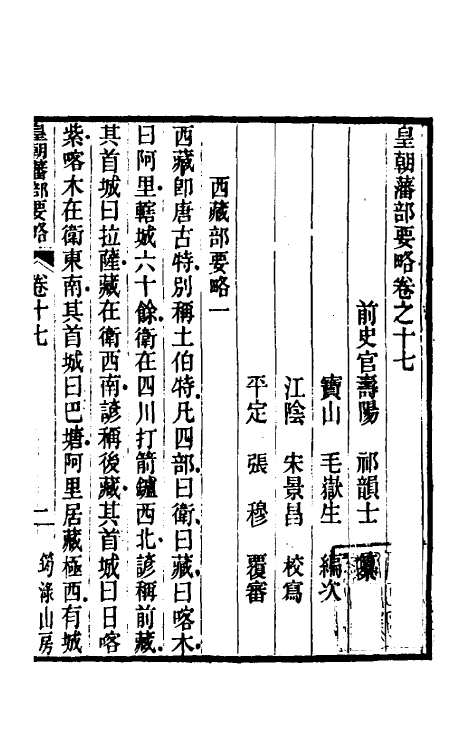 皇朝藩部要略卷之十七
前史官壽陽 祁韻士 纂
寶山 毛嶽生 編次
江陰 宋景昌 校寫
平定 張穆 覆審
西藏部要略一
西藏卽唐古特別稱土伯特凡四部曰衛曰藏曰喀木
曰阿里轄城六十餘衛在四川打箭鑪西北諺稱前藏
其首城曰拉薩藏在衛西南諺稱後藏其首城曰日喀
紫喀木在衛東南其首城曰巴塘阿里居藏極西有城
皇朝藩部要略 卷十七 一 筠淥山房